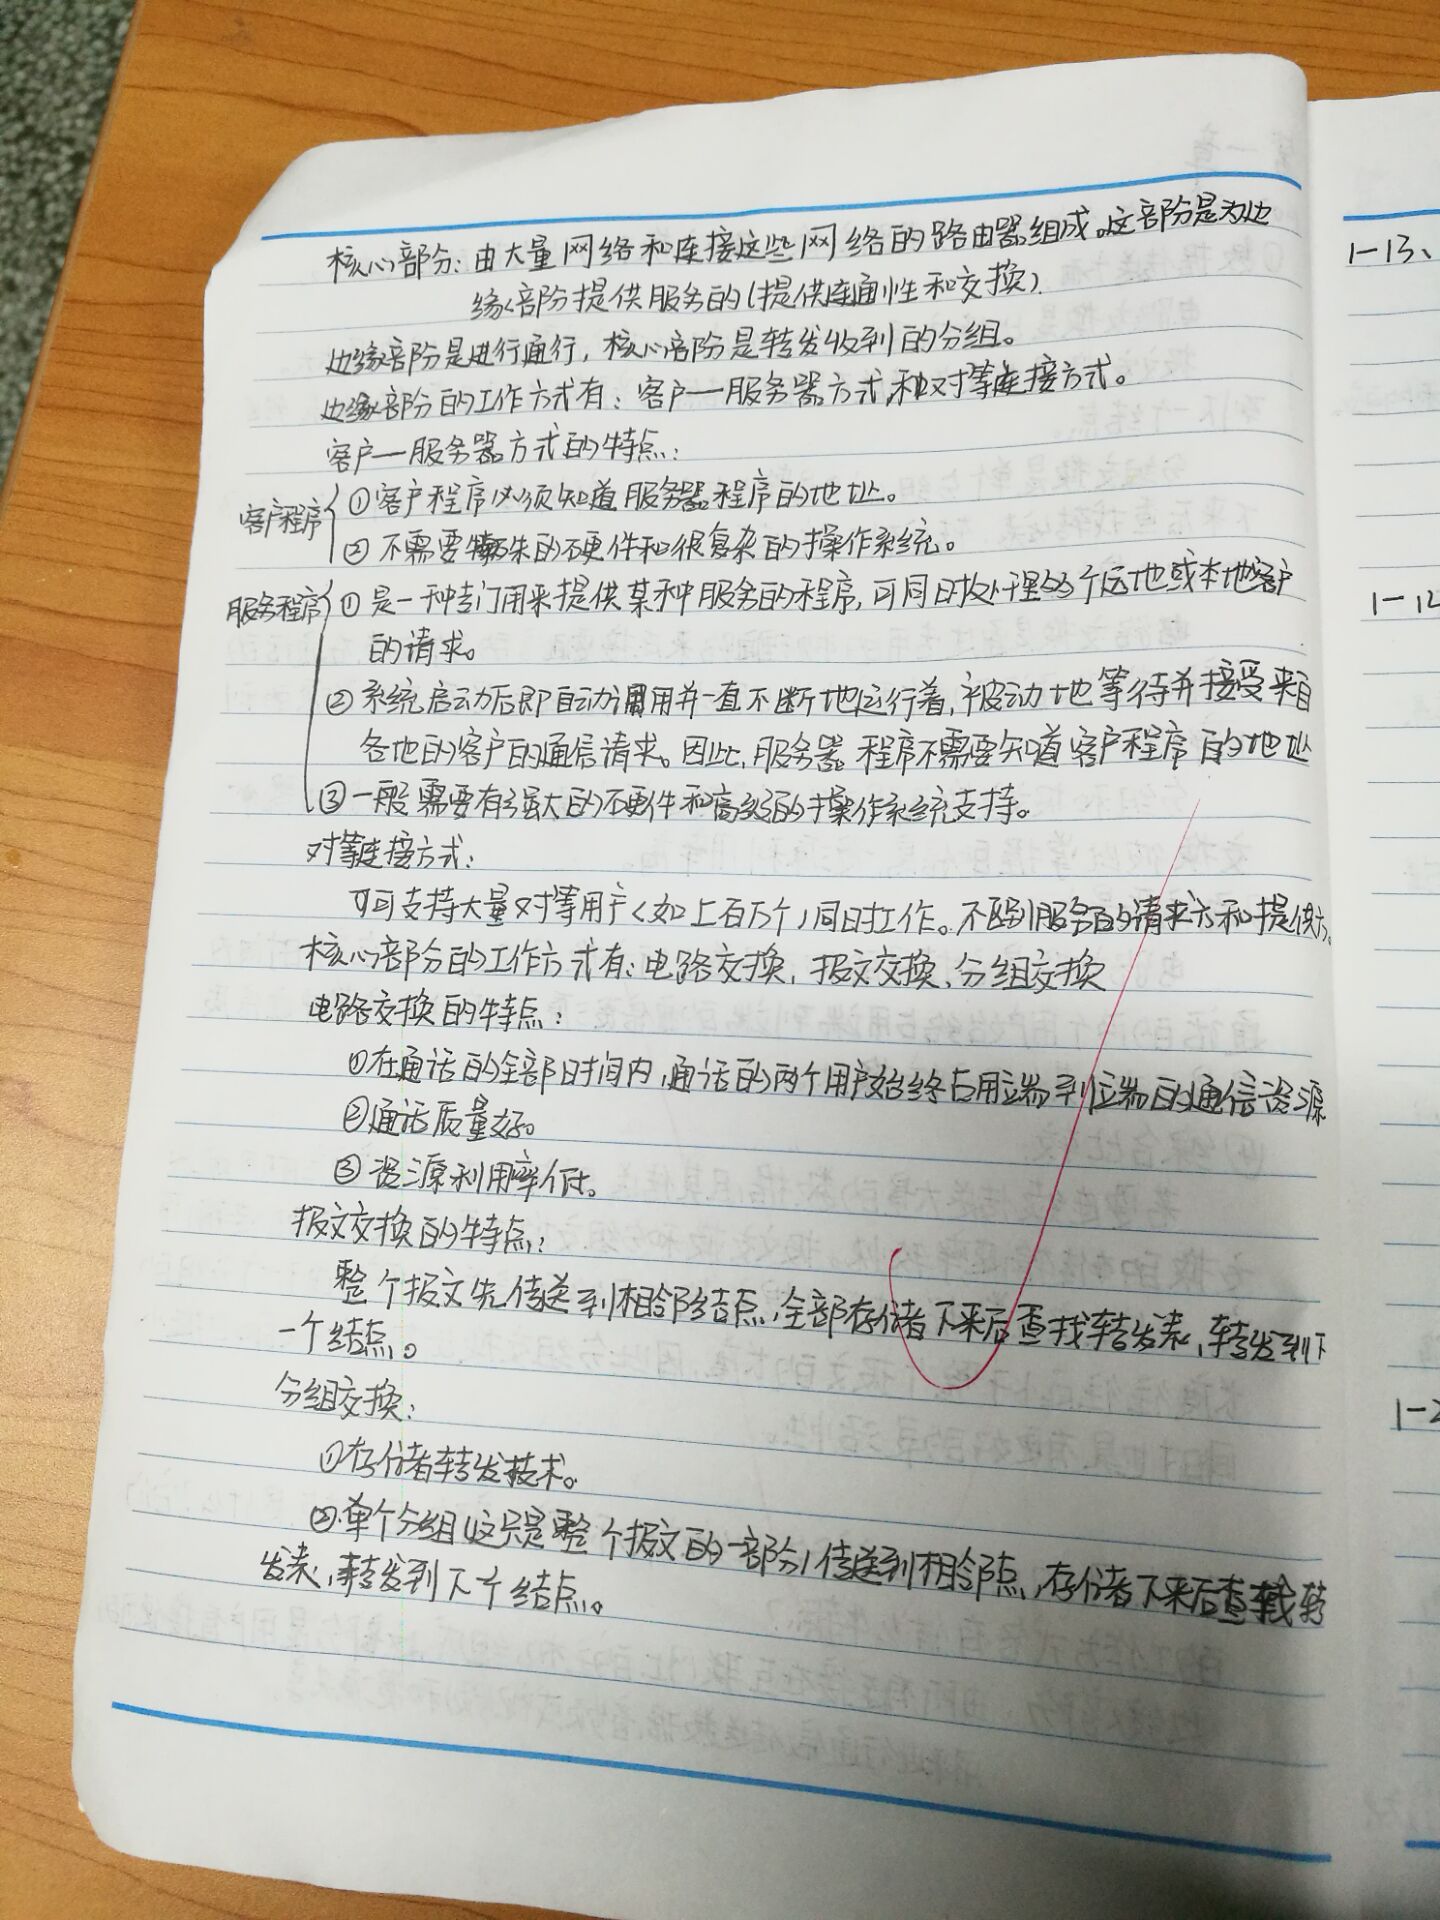 核心部分:由大量网络和连接这些网络的路由器组成。这部分是为边
缘部份提供服务的(提供连通性和交换)
边缘部份是进行通行,核心部份是转发收到的分组。
边缘部分的工作方式有:客户—服务器方式和对等连接方式。
客户—服务器方式的特点:
客户程序 ①客户程序必须知道服务器程序的地址。
②不需要特殊的硬件和很复杂的操作系统。
服务程序 ①是一种专门用来提供某种服务的程序,可同时处理多个远地或本地客户
的请求。
②系统启动后即自动调用并一直不断地运行着,被动地等待并接受来自
各地的客户的通信请求。因此,服务器程序不需要知道客户程序的地址
③一般需要有强大的硬件和高级的操作系统支持。
对等连接方式:
可支持大量对等用户(如上百万个)同时工作。不区别服务的请求方和提供方。
核心部分的工作方式有:电路交换,报文交换、分组交换
电路交换的特点:
①在通话的全部时间内,通话的两个用户始终占用端到端的通信资源
②通话质量好。
③资源利用率低。
报文交换的特点:
整个报文先传送到相邻结点,全部存储下来后查找转发表,转发到下
一个结点。
分组交换:
①存储转发技术。
②单个分组(这只是整个报文的一部分)传送到相邻点,存储下来后查找转
发表,转发到下个结点。
1-13、
1-1
1-2